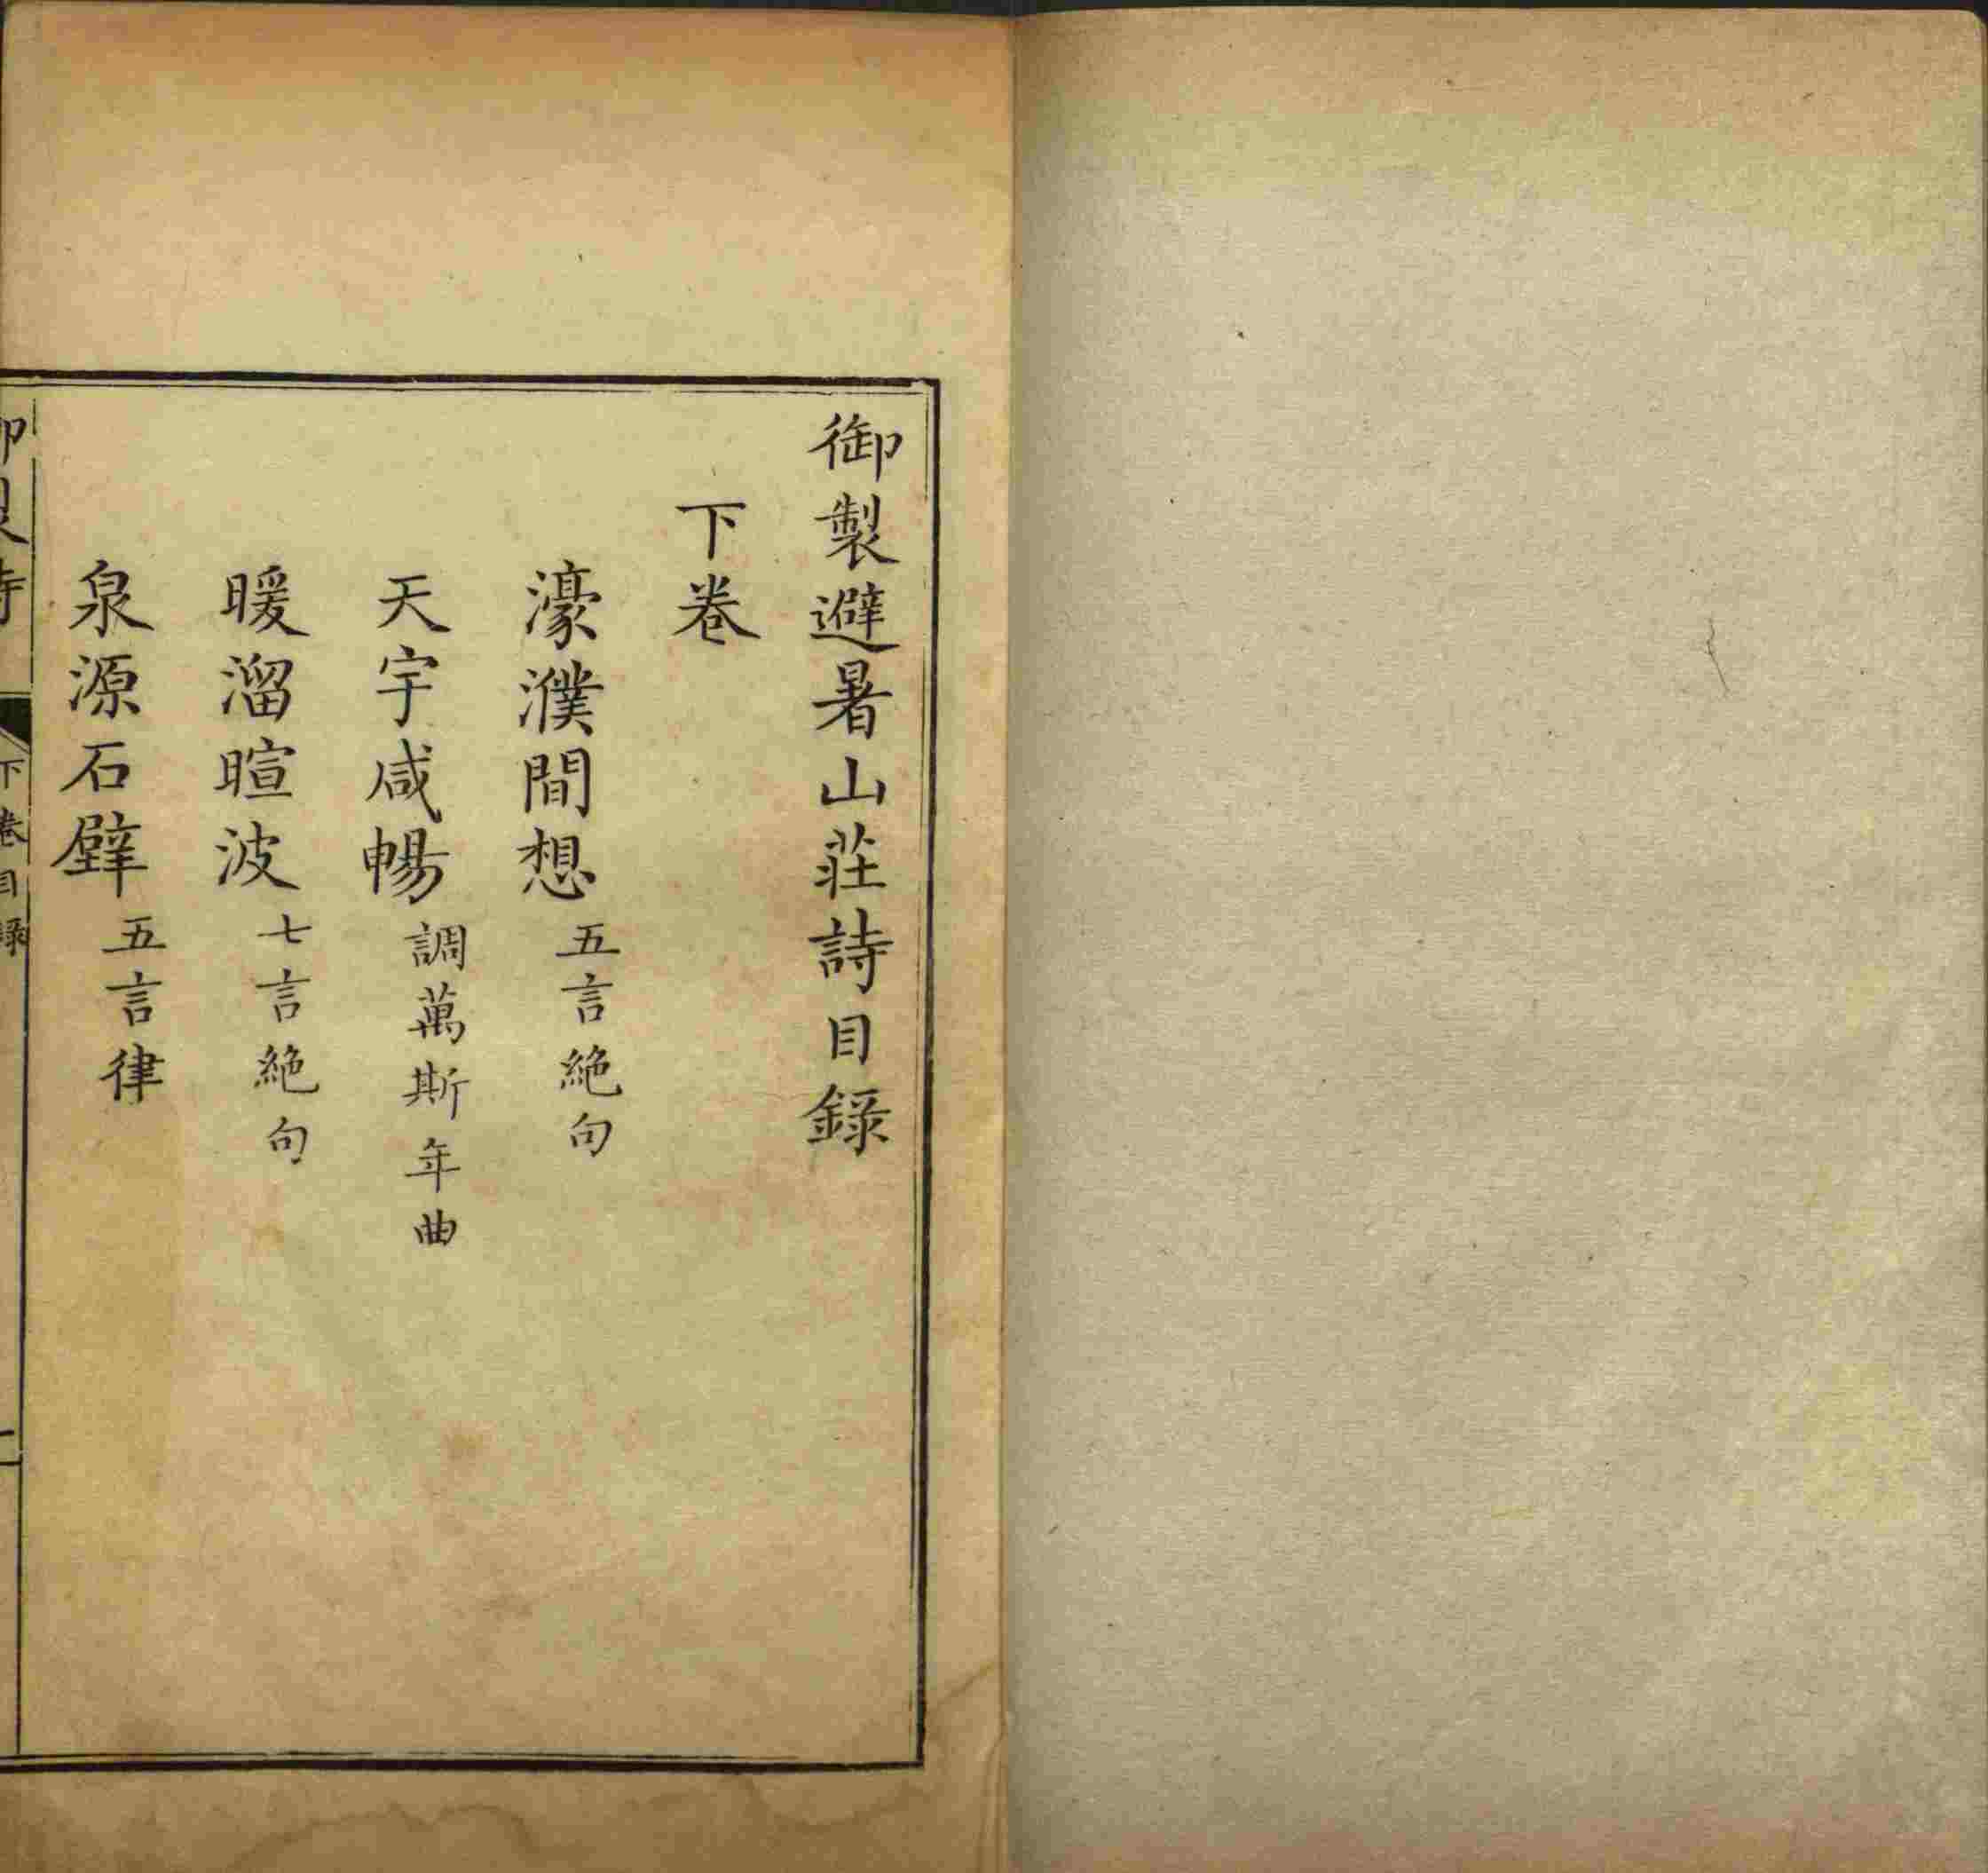 御製避暑山莊詩目錄
下卷
濠濮間想 五言絶句
天宇咸暢 調萬斯年曲
暖溜暄波 七言絶句
泉源石壁 五言律
御製詩 下卷目錄 一